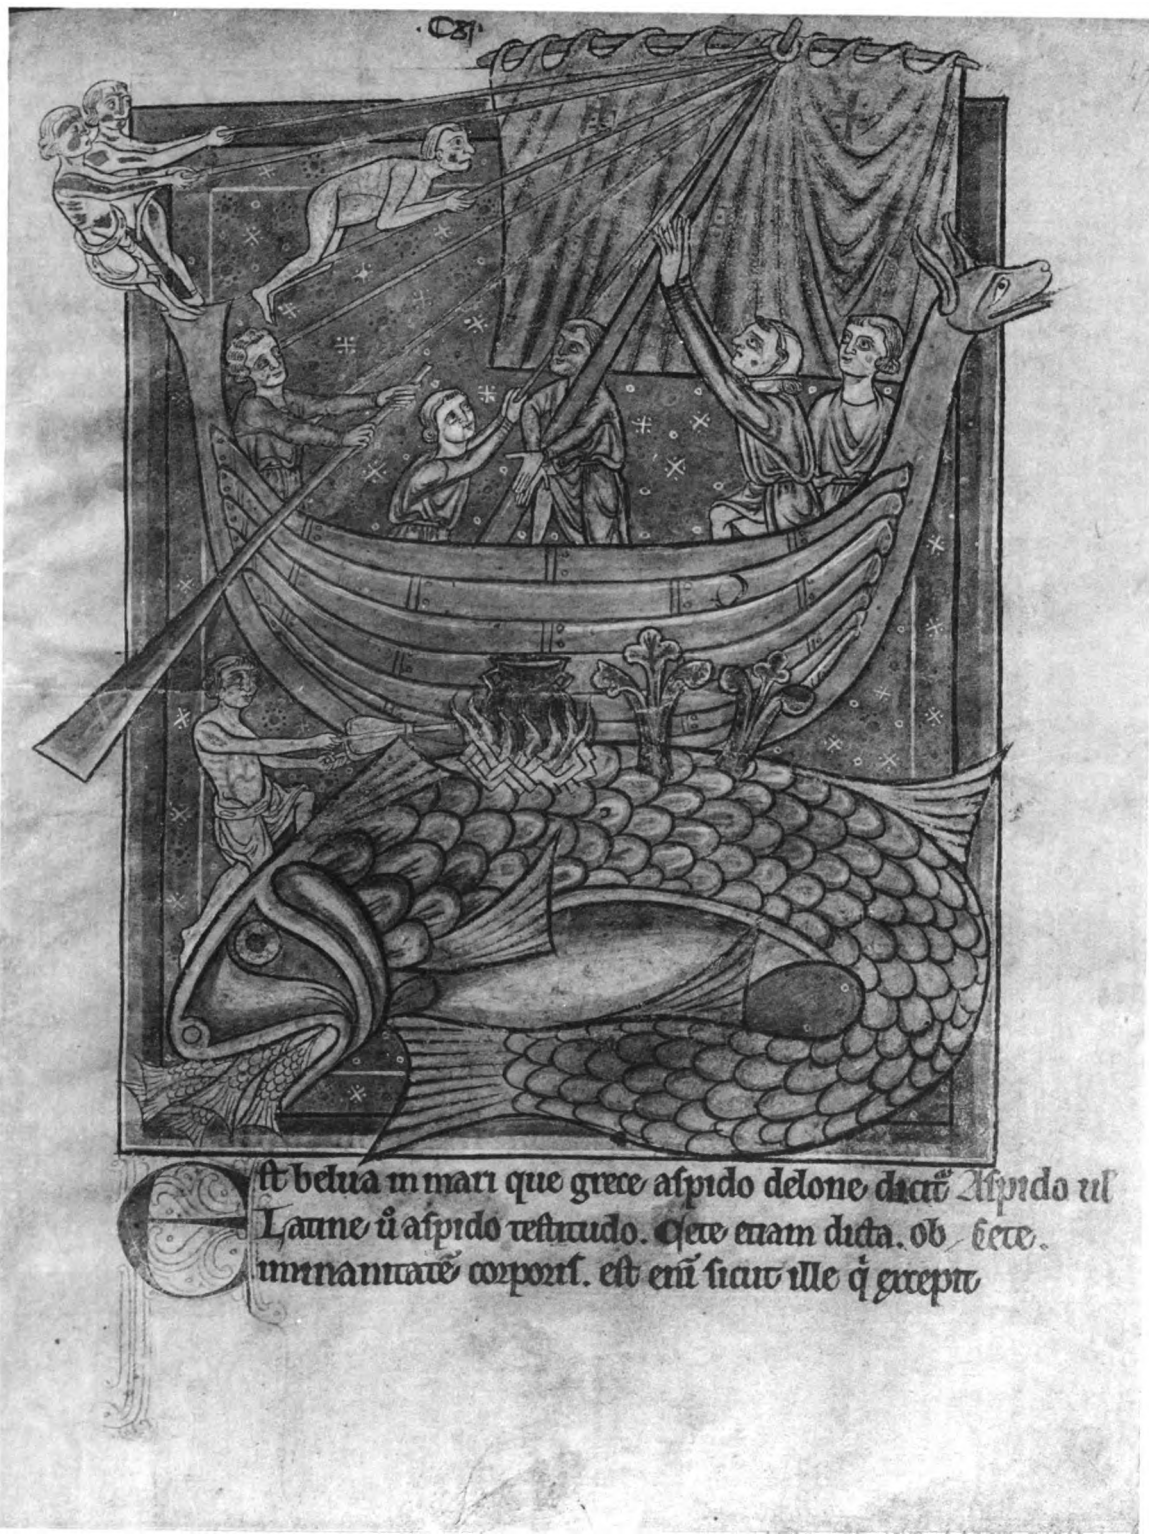 Est belua in mari que grece aspido delone dicit̃ Aspido ul̃
Latine ũ aspido testitudo. Cete etiam dicta. ob cete.
inmanitatẽ corporis. est eni̅ sicut ille q̇ excepit